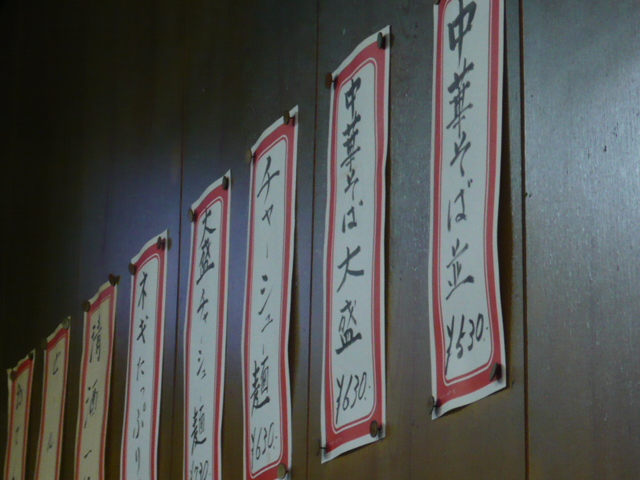 中華そば並
¥530.
中華そば大盛
¥630.
チャーシュー麺
¥630.
大盛チャーシュー麺
ネギたっぷり
清酒一